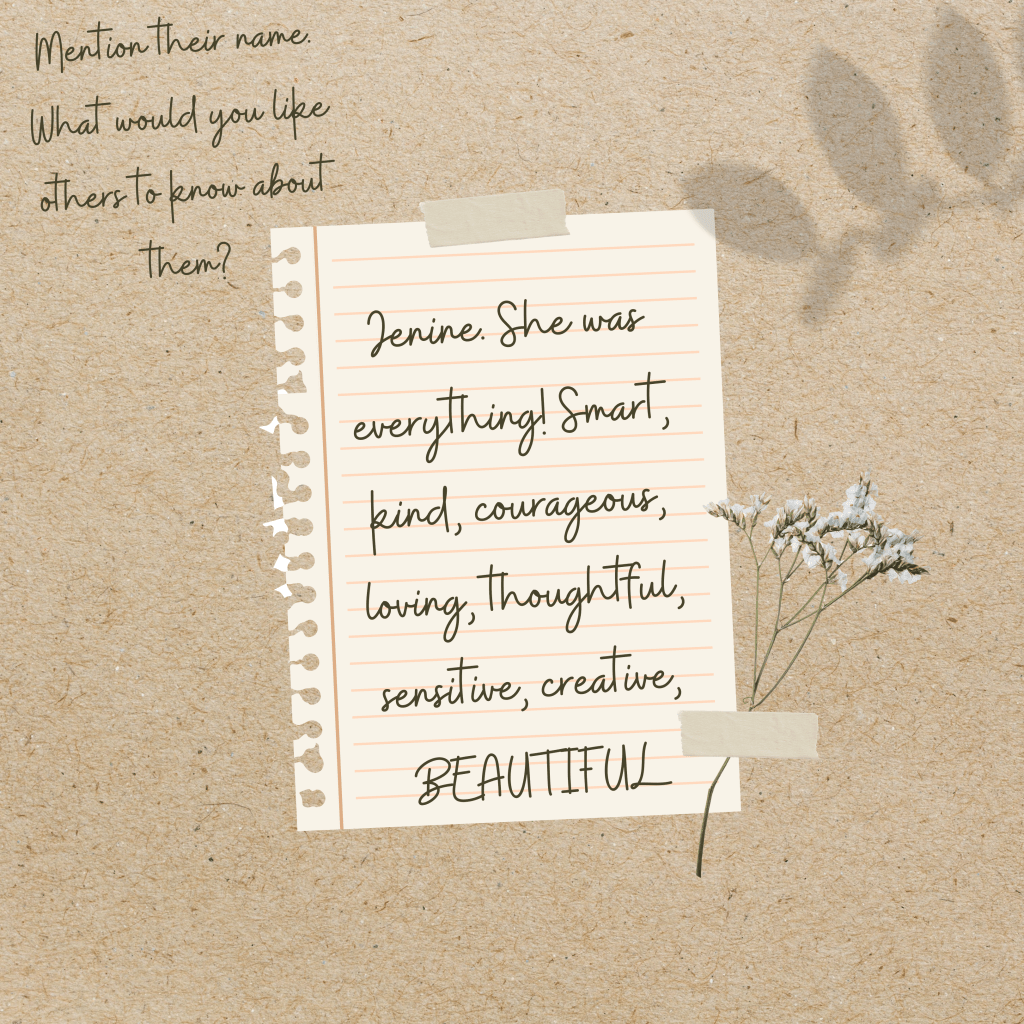 Mention their name.
What would you like
others to know about
them?
Jenine. She was
everything! Smart,
kind, courageous,
loving, thoughtful,
sensitive, creative,
BEAUTIFUL